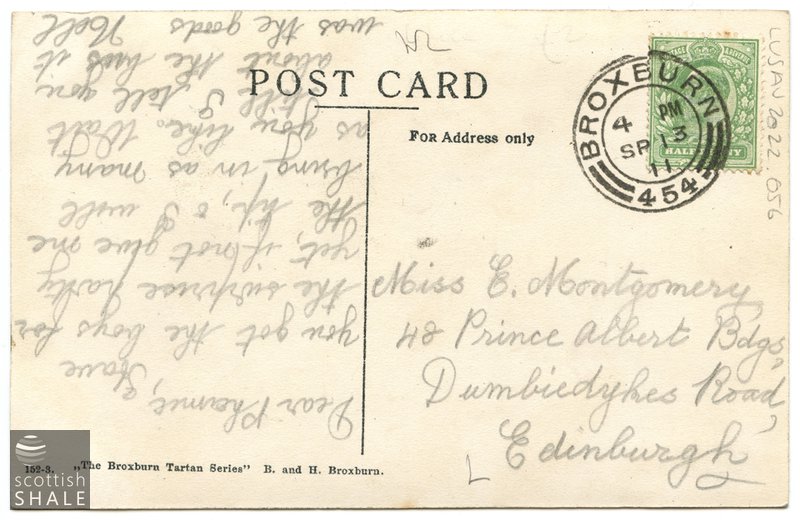 POST CARD
For Address only
BROXBURN
4 PM
SP 13
11
454
POSTAGE
HALFPENNY
LUSAV 2022.056
Miss E. Montgomery
48 Prince Albert Bdgs,
Dumbiedykes Road,
Edinburgh
Dear
Have
you got the boys for
the surprise party
yet, if not give me
the tip, & I will
bring in as many
as you like. Wait
till I tell you
about the hus it
was the goods
Nell
152-3. "The Broxburn Tartan Series" B. and H. Broxburn.
scottish
SHALE